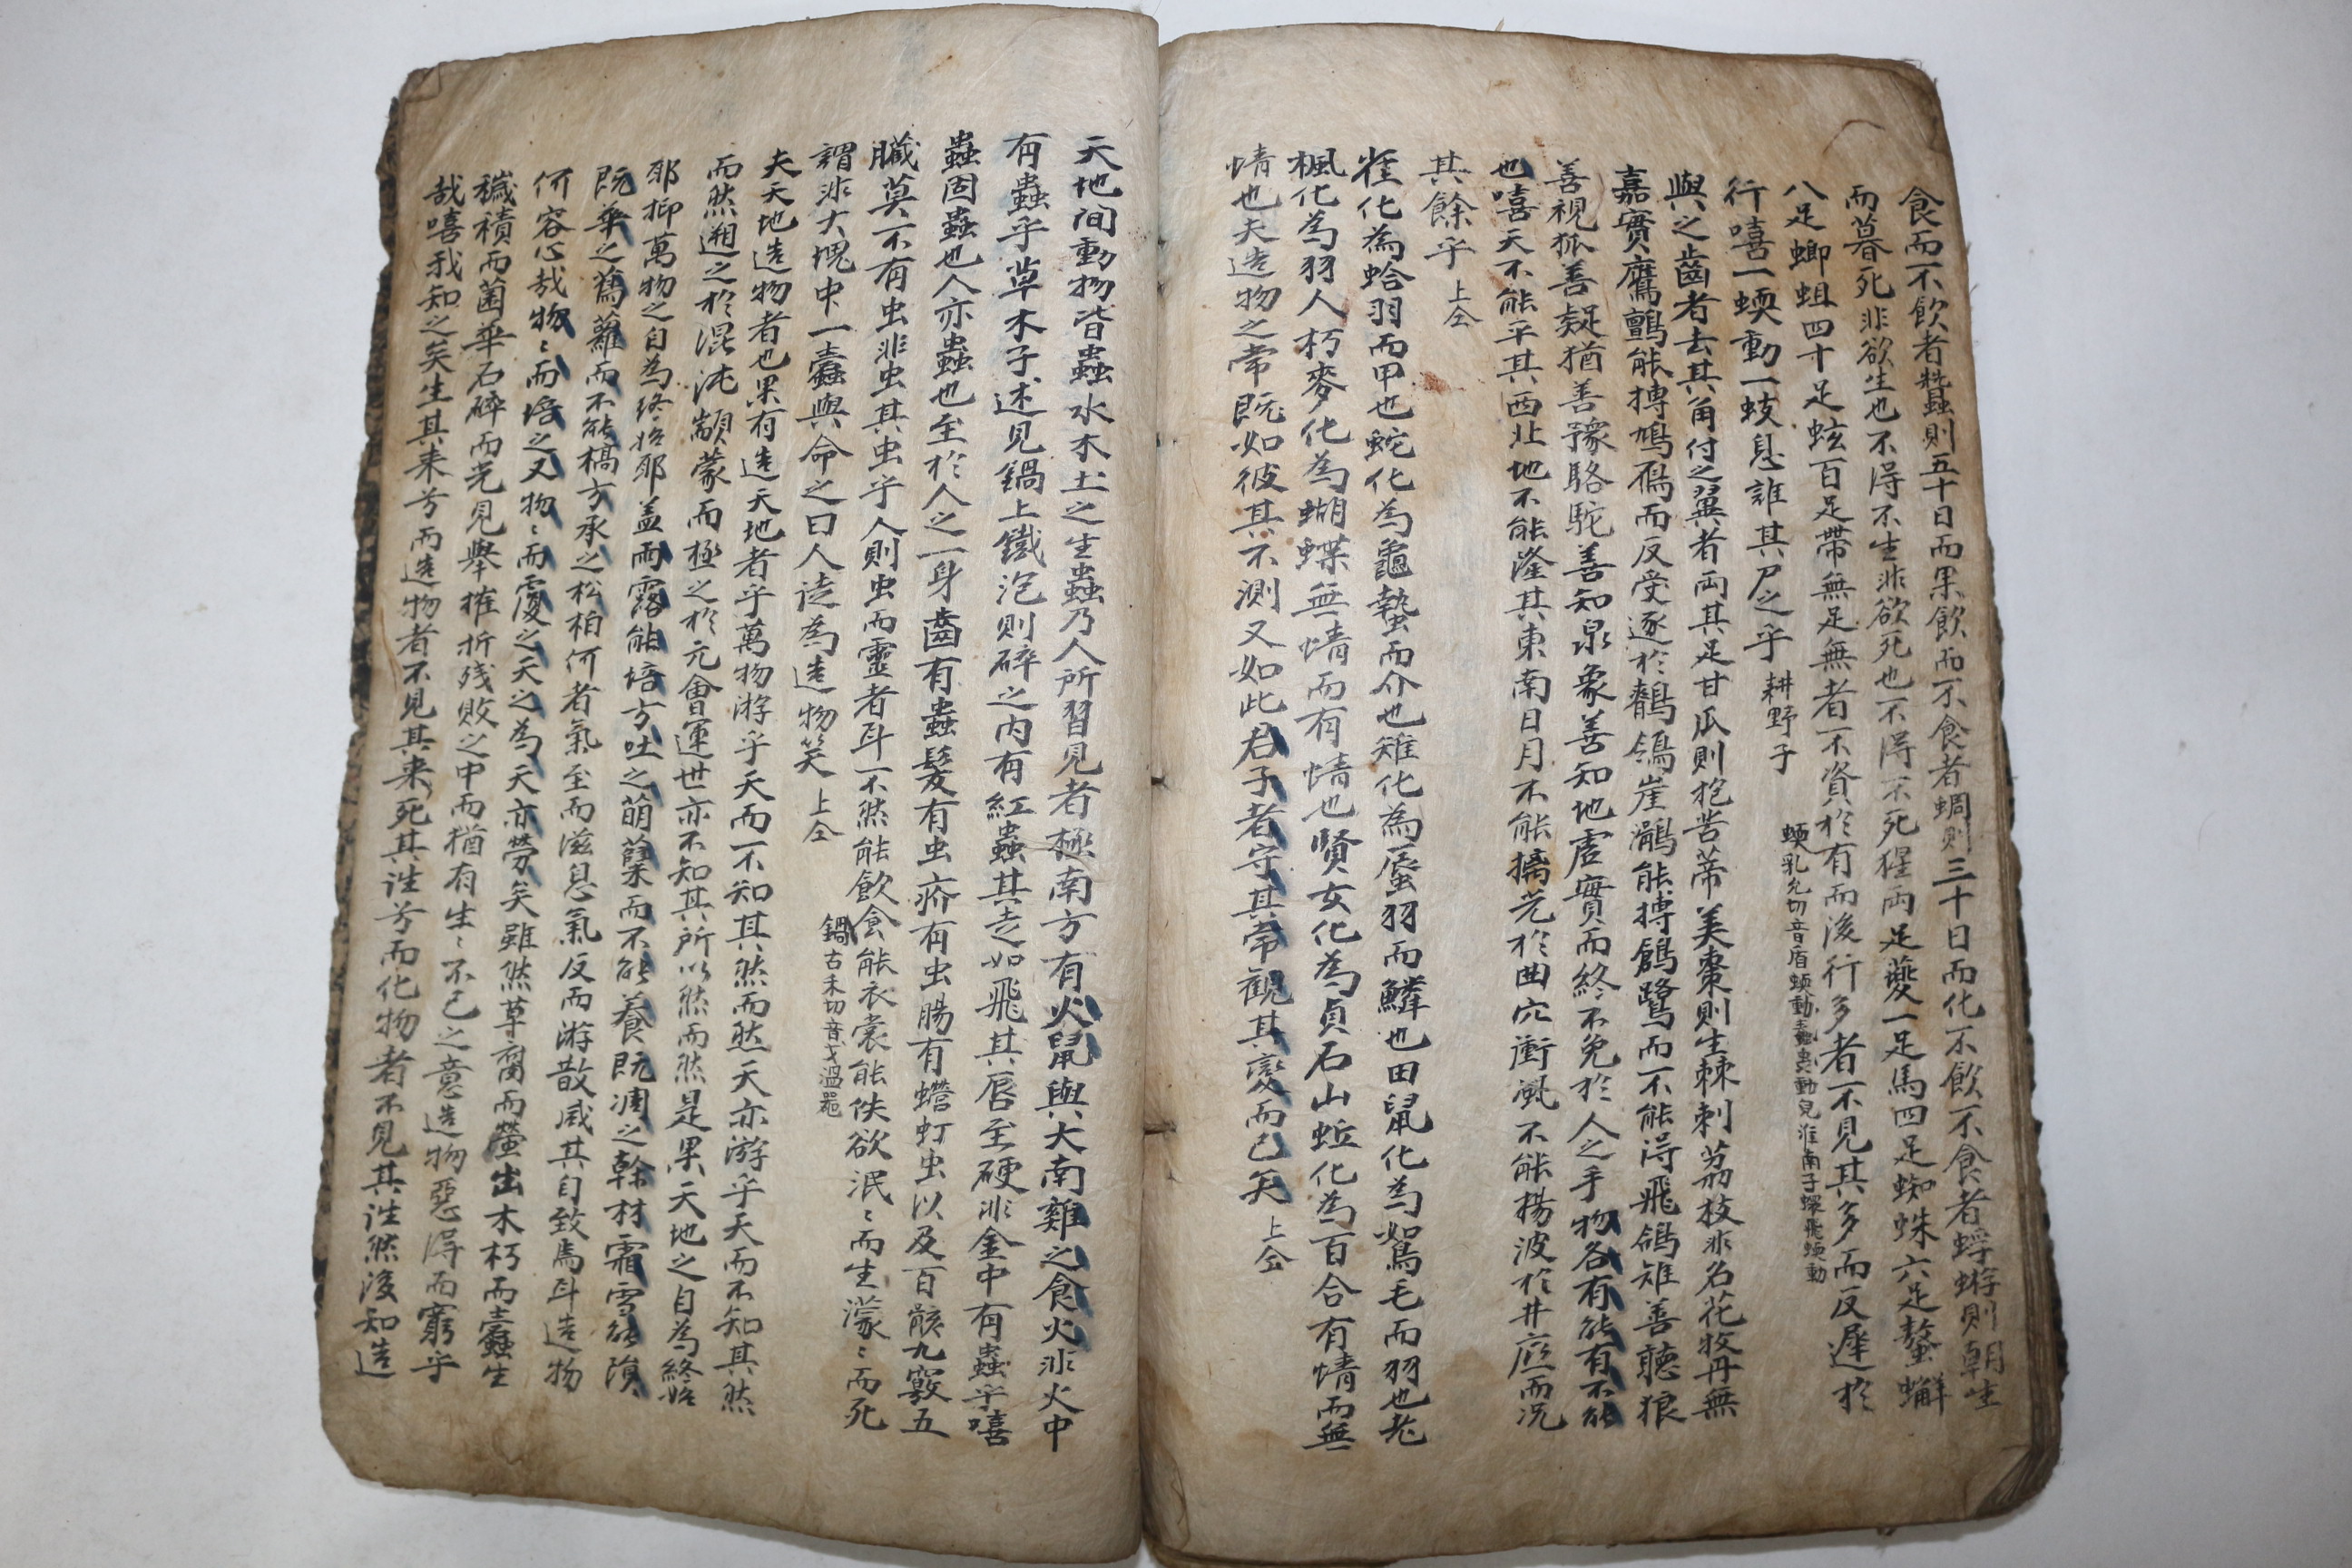 食而不飮者蠶則五十日而果飮而不食者蜩則三十日而化不飮不食者蜉蝣則朝生
而暮死非欲生也不得不生非欲死也不得不死猩兩足夔一足馬四足蜘蛛六足螯蠏
八足蝍蛆四十足蚿百足帶無足無者不資於有而後行多者不見其多而反遲於
行噫一蝡動一蚑息誰其尸之乎 耕野子 蝡乳允切音盾蝡動
蟲動皃淮南子蠉飛蝡動
與之齒者去其角付之翼者兩其足甘瓜則抱苦蒂美棗則生棘刺荔枝非名花牧丹無
嘉實鷹鸇能搏鳩而反受逐於鶺鴒崖鶻能搏鶴鷺而不能得飛鴿雉善聽狼
善視狐善疑猶善豫駱駝善知泉象善知地虛實而終不免於人之手物各有能有不能
也噫天不能平其西北地不能隆其東南日月不能摛光於曲穴衝風不能揚波於井底而况
其餘乎 上仝
雀化爲蛤羽而甲也蛇化爲龜蟄而介也雉化爲蜃羽而鱗也田鼠化爲鴽毛而羽也老
楓化爲羽人朽麥化爲蝴蝶無情而有情也賢女化爲貞石山蚯化爲百合有情而無
情也夫造物之常旣如彼其不測又如此君子者守其常觀其變而已矣 上仝
天地間動物皆蟲水木土之生蟲乃人所習見者極南方有火鼠與大南雞之食火非火中
有蟲乎草木子述見鍋上鐵泡則碎之內有紅蟲其走如飛其唇至硬非金中有蟲乎噫
蟲固蟲也人亦蟲也至於人之一身齒有蟲髮有虫疥有虫腸有蟯虰虫以及百骸九竅五
臟莫不有虫非虫其虫乎人則虫而靈者耳一不然能飮食能衣裳能佚欲泯〻而生濛〻而死
謂非大塊中一蠹與命之曰人徒爲造物笑 上仝 鍋古禾切音戈溫器
夫天地造物者也果有造天地者乎萬物游乎天而不知其然而然天亦游乎天而不知其然
而然遡之於混沌顓蒙而極之於元會運世亦不知其所以然而然是果天地之自爲終始
邪抑萬物之自爲終始邪盖雨露能培方吐之萌蘖而不能養旣凋之榦材霜雪能隕
旣華之蔿蘿而不能槁方承之松柏何者氣至而滋息氣反而游散咸其自致焉耳造物
何容心哉物〻而培之又物〻而覆之天之爲天亦勞矣雖然草腐而螢出木朽而蠹生
穢積而菌華石碎而光見擧摧折殘敗之中而猶有生〻不已之意造物惡得而窮乎
哉噫我知之矣生其来兮而造物者不見其来死其往兮而化物者不見其往然後知造